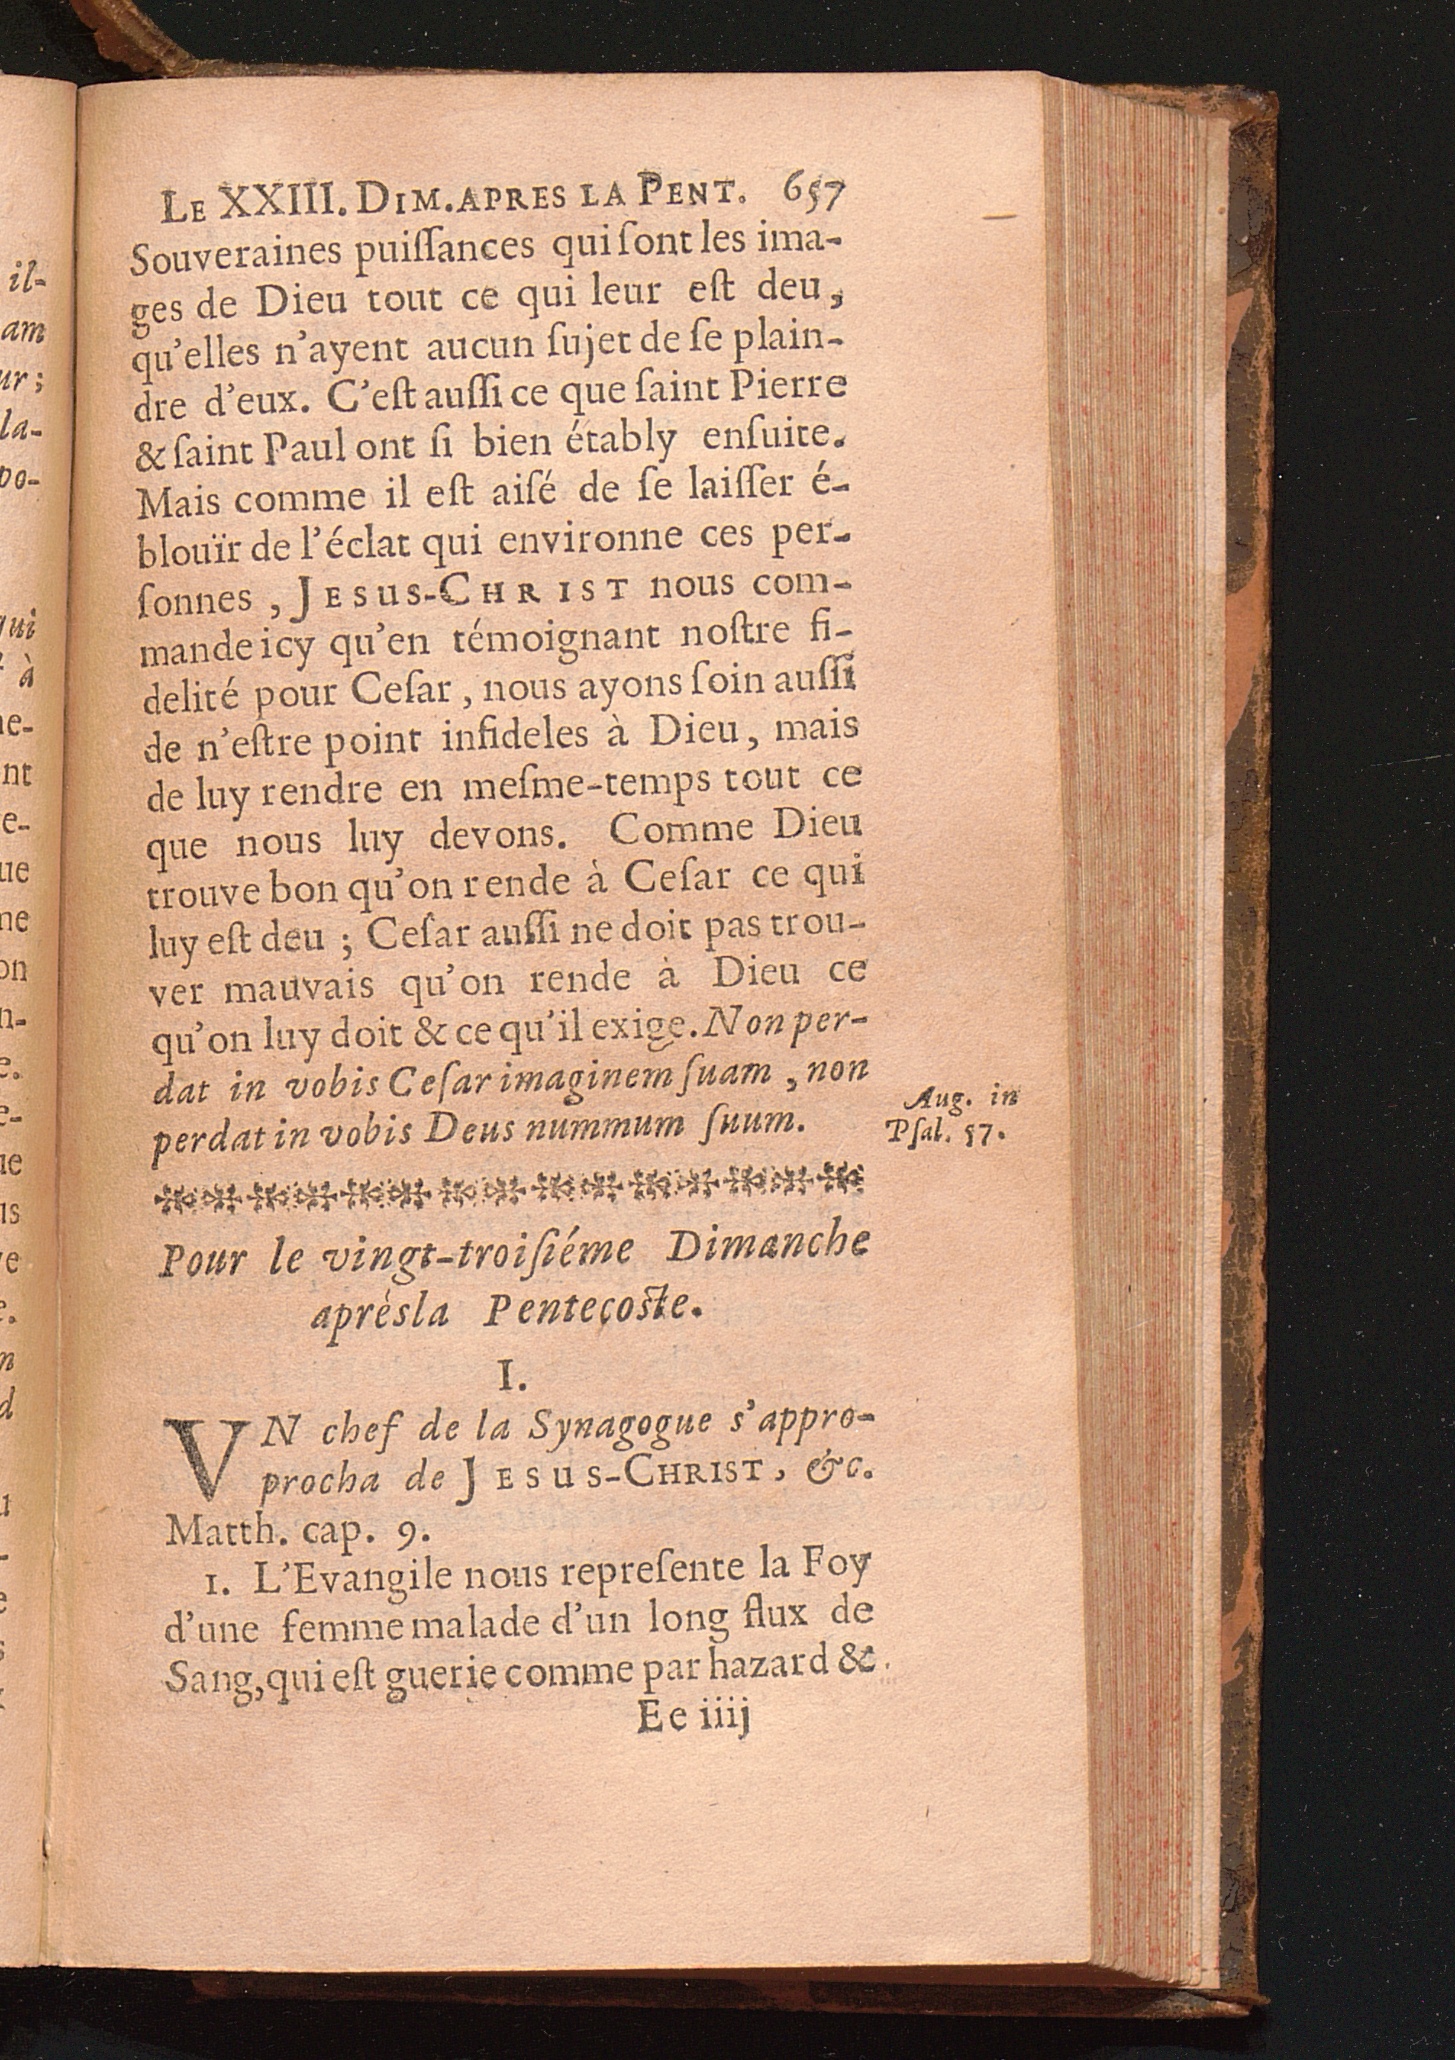 il-
am
ur;
la-
po-
qui
à
ne-
nt
e-
ue
me
on
n-
e.
e-
ue
us
ve
e.
n
d
u
-
e
s
LE XXIII. DIM. APRES LA PENT. 657
Souveraines puiſſances qui ſont les ima-
ges de Dieu tout ce qui leur eſt deu,
qu'elles n'ayent aucun ſujet de ſe plain-
dre d'eux. C'eſt auſſi ce que ſaint Pierre
& ſaint Paul ont ſi bien étably enſuite.
Mais comme il eſt aiſé de ſe laiſſer é-
blouïr de l'éclat qui environne ces per-
ſonnes, JESUS-CHRIST nous com-
mande icy qu'en témoignant noſtre fi-
delité pour Ceſar, nous ayons ſoin auſſi
de n'eſtre point infideles à Dieu, mais
de luy rendre en meſme-temps tout ce
que nous luy devons. Comme Dieu
trouve bon qu'on rende à Ceſar ce qui
luy eſt deu ; Ceſar auſſi ne doit pas trou-
ver mauvais qu'on rende à Dieu ce
qu'on luy doit & ce qu'il exige. Non per-
dat in vobis Ceſar imaginem ſuam, non
perdat in vobis Deus nummum ſuum.
Aug. in
Pſal. 57.
Pour le vingt-troiſiéme Dimanche
aprésla Pentecoſte.
I.
VN chef de la Synagogue s'appro-
procha de JESUS-CHRIST, &c.
Matth. cap. 9.
1. L'Evangile nous repreſente la Foy
d'une femme malade d'un long flux de
Sang, qui eſt guerie comme par hazard &
Ee iiij